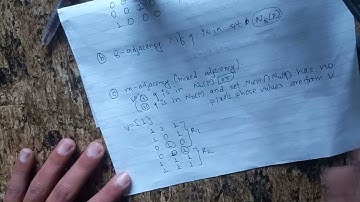 0 0
0 0 1 0
1 0 0 0
(b) 8-adjacency : if q is in set N8(P)
(c) m-adjacency (mixed adjacency)
① q is in N4(P) or
② q is in ND(P) and set N4(P) ∩ N4(q) has no
pixels whose values are from V.
V = {1}
1 1 1
1 0 1 R1
0 1 0
0 0 1
1 1 1 R2
1 1 1